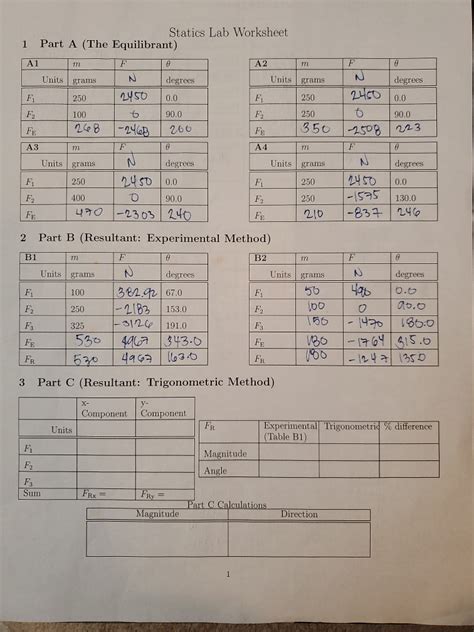 Statics Lab Worksheet
1 Part A (The Equilibrant)
A1 m F θ
Units grams N degrees
F₁ 250 2450 0.0
F₂ 100 0 90.0
F_E 268 -2468 200
A2 m F θ
Units grams N degrees
F₁ 250 2450 0.0
F₂ 250 0 90.0
F_E 350 -2508 223
A3 m F θ
Units grams N degrees
F₁ 250 2450 0.0
F₂ 400 0 90.0
F_E 470 -2303 240
A4 m F θ
Units grams N degrees
F₁ 250 2450 0.0
F₂ 250 -1575 130.0
F_E 210 -837 246
2 Part B (Resultant: Experimental Method)
B1 m F θ
Units grams N degrees
F₁ 100 382.92 67.0
F₂ 250 -2183 153.0
F₃ 325 -3126 191.0
F_E 530 4967 343.0
F_R 530 4967 163.0
B2 m F θ
Units grams N degrees
F₁ 50 490 0.0
F₂ 100 0 90.0
F₃ 150 -1470 180.0
F_E 180 -1764 315.0
F_R 180 -1247 135.0
3 Part C (Resultant: Trigonometric Method)
x-Component y-Component
Units
F₁
F₂
F₃
Sum F_Rx = F_Ry =
F_R Experimental (Table B1) Trigonometric % difference
Magnitude
Angle
Part C Calculations
Magnitude Direction
1